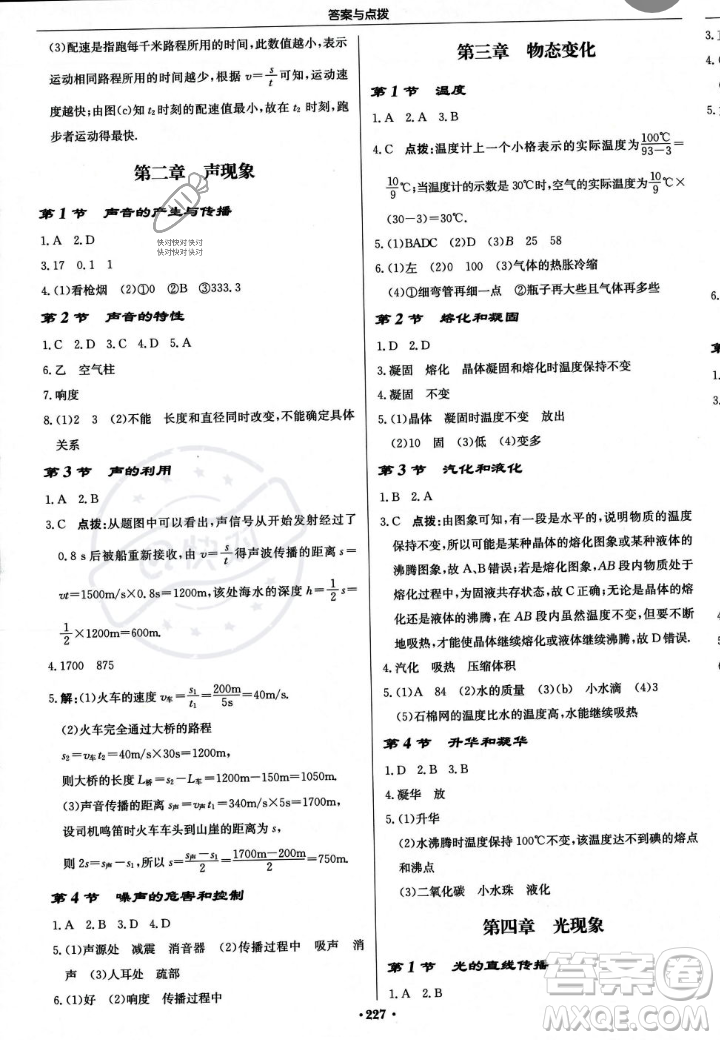 答案与点拨
(3)配速是指跑每千米路程所用的时间，此数值越小，表示
运动相同路程所用的时间越少，根据 v=s/t 可知，此数值越小，速
度越快；由图(c)知 t₂ 时刻的配速值最小，故在 t₂ 时刻，跑
步者运动得最快.
第二章 声现象
第1节 声音的产生与传播
快对快对快对
快对快对快对
1.A 2.D
3.17 0.1 1
4.(1)看枪烟 (2)①0 ②0 ③333.3
第2节 声音的特性
1.C 2.D 3.C 4.D 5.A
6.乙 空气柱
7.响度
8.(1)2 3 (2)不能 长度和直径同时改变，不能确定具体
关系
第3节 声的利用
1.A 2.B
3.C 点拨：从题图中可以看出，声信号从开始发射经过了
0.8 s后被船重新接收，由 v=s/t 得声波传播的距离 s=
vt=1500m/s×0.8s=1200m，该处海水的深度 h=1/2 s=
1/2×1200m=600m.
4.1700 875
5.解：(1)火车的速度 v车=s₁/t₁=200m/5s=40m/s.
(2)火车完全通过大桥的路程
s₂=v车t₂=40m/s×30s=1200m,
则大桥的长度 L桥=s₂-L车=1200m-150m=1050m.
(3)声音传播的距离 s声=v声t₃=340m/s×5s=1700m,
设司机鸣笛时火车车头到山崖的距离为 s,
则 2s=s声-s₁,所以 s=(s声-s₁)/2=(1700m-200m)/2=750m.
第4节 噪声的危害和控制
1.A 2.B 3.D 4.D
5.(1)声源处 减震 消音器 (2)传播过程中 吸声 消
声 (3)人耳处 疏部
6.(1)好 (2)响度 传播过程中
第三章 物态变化
第1节 温度
1.A 2.A 3.B
4.C 点拨：温度计上一个小格表示的实际温度为 100℃/(93-3)=
10/9℃；当温度计的示数是30℃时，空气的实际温度为 10/9℃×
(30-3)=30℃.
5.(1)BADC (2)D (3)B 25 58
6.(1)左 (2)0 100 (3)气体的热胀冷缩
(4)①细弯管再细一点 ②瓶子再大些且气体再多些
第2节 熔化和凝固
1.D 2.B
3.凝固 熔化 晶体凝固和熔化时温度保持不变
4.凝固 不变
5.(1)晶体 凝固时温度不变 放出
(2)10 固 (3)低 (4)变多
第3节 汽化和液化
1.A 2.B
3.C 点拨：由图象可知，有一段是水平的，说明物质的温度
保持不变，所以可能是某种晶体的熔化图象或某液体的
沸腾图象，故 A、B错误；若是晶体的熔化图象，则 AB 段为
熔化过程中，为固液共存状态，故 C正确；无论是晶体的熔
化还是液体的沸腾，在 AB 段内虽然温度不变，但要不断
地吸热，才能使晶体继续熔化或液体继续沸腾，故D错误.
4.汽化 吸热 压缩体积
5.(1)A 84 (2)水的质量 (3)b 小水滴 (4)3
(5)石棉网的温度比水的温度高，水能继续吸热
第4节 升华和凝华
1.D 2.B 3.B
4.凝华 放
5.(1)升华
(2)水沸腾时温度保持100℃不变，该温度达不到碘的熔点
和沸点
(3)二氧化碳 小水珠 液化
第四章 光现象
第1节 光的直线传播
1.A 2.B
答案圈
· 227 ·